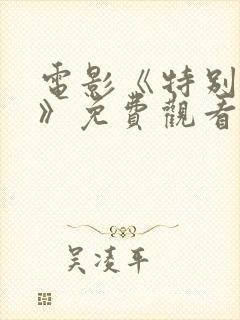 電影《特别
》免費觀看
吴凌平